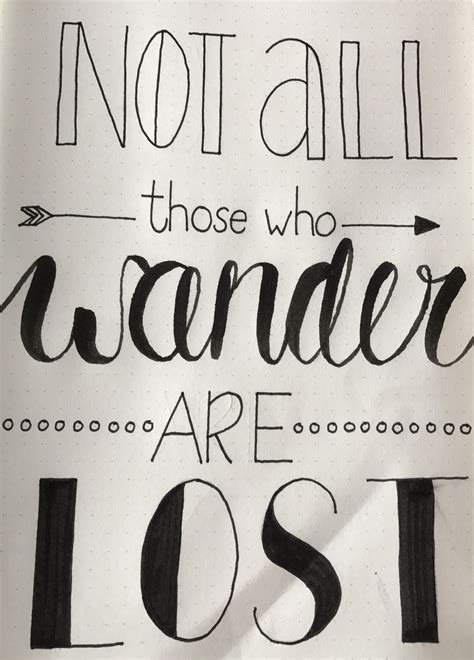 NOT aLL
those who
wander
ARE
LOST